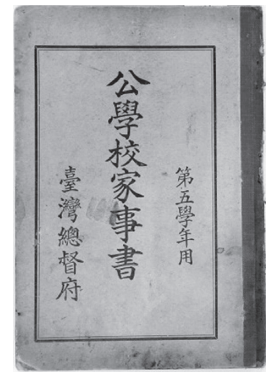 第五學年用
公學校家事書
臺灣總督府